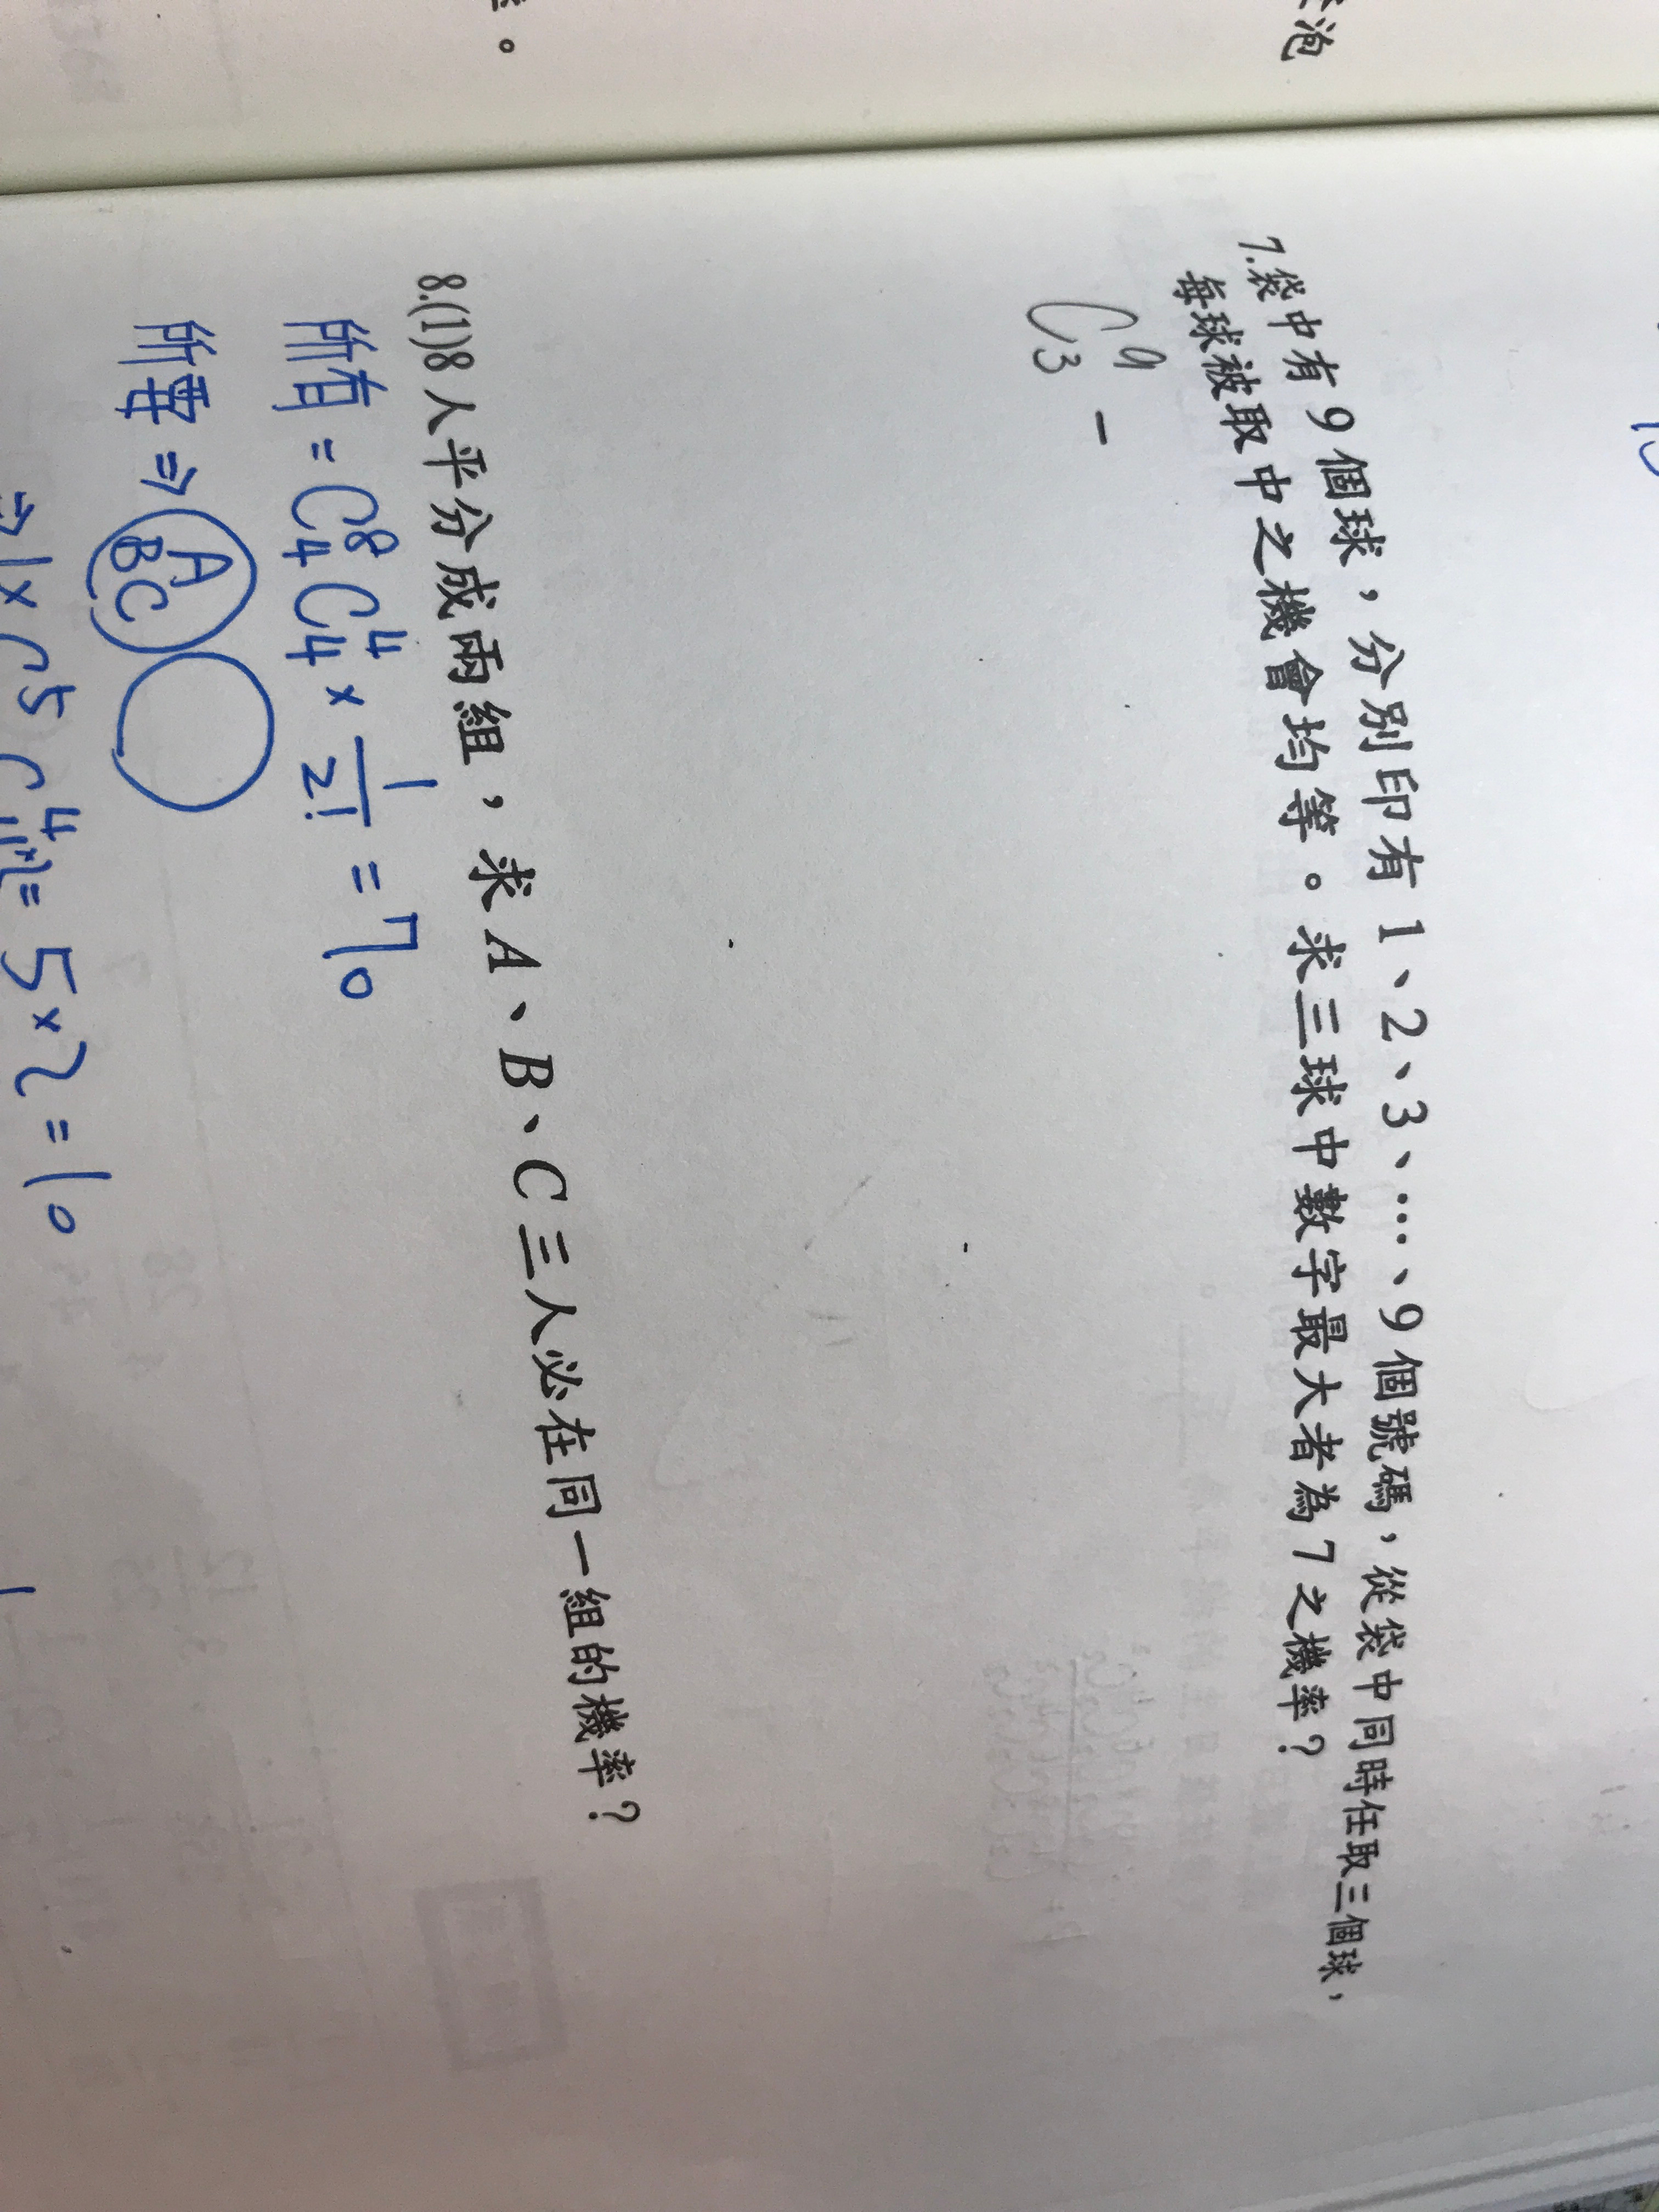 泡
。
7.袋中有9個球，分別印有1、2、3、…、9個號碼，從袋中同時任取三個球，
每球被取中之機會均等。求三球中數字最大者為7之機率？
C⁹₃ −
8.(1)8人平分成兩組，求A、B、C三人必在同一組的機率？
所有 = C⁸₄ C⁴₄ × 1/2! = 70
所要 ⇒ A BC
⇒ 1 × C⁵ C⁴ = 5 × 2 = 10